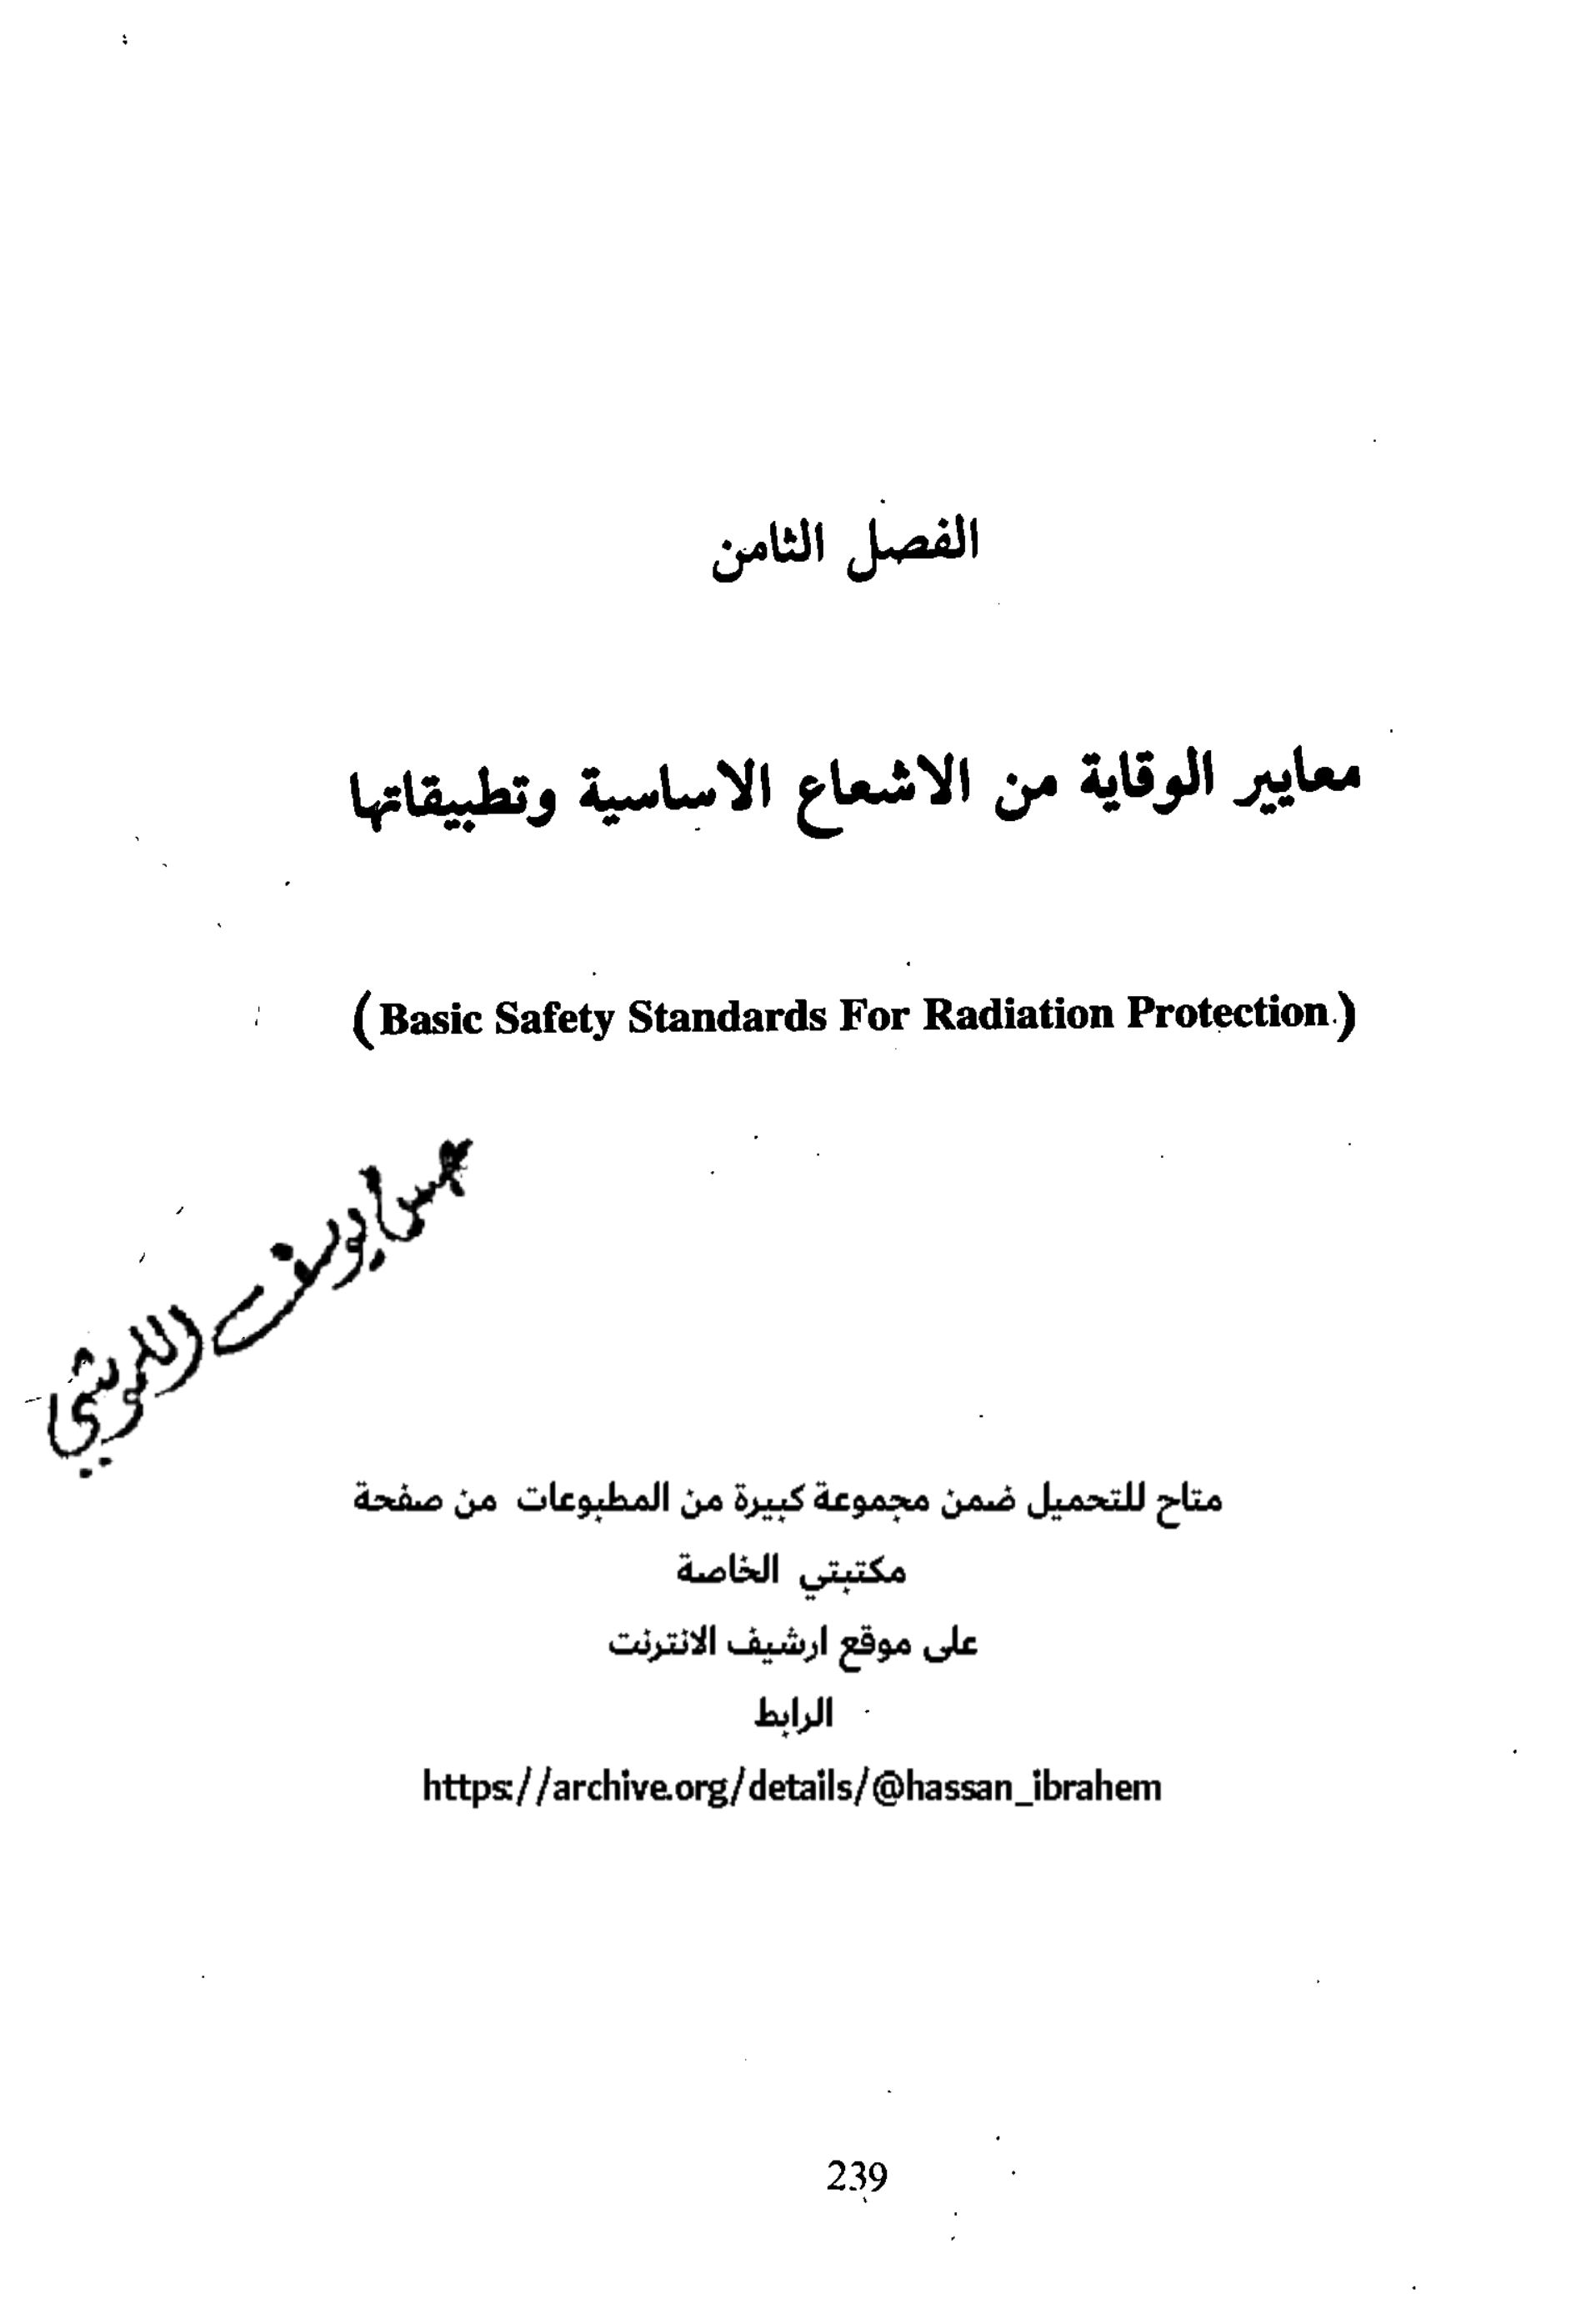 الفصل الثامن
معايير الوقاية من الاشعاع الاساسية وتطبيقاتها
(Basic Safety Standards For Radiation Protection)
يوسف
متاح للتحميل ضمن مجموعة كبيرة من المطبوعات من صفحة
مكتبتي الخاصة
على موقع ارشيف الانترنت
الرابط
https://archive.org/details/@hassan_ibrahem
239